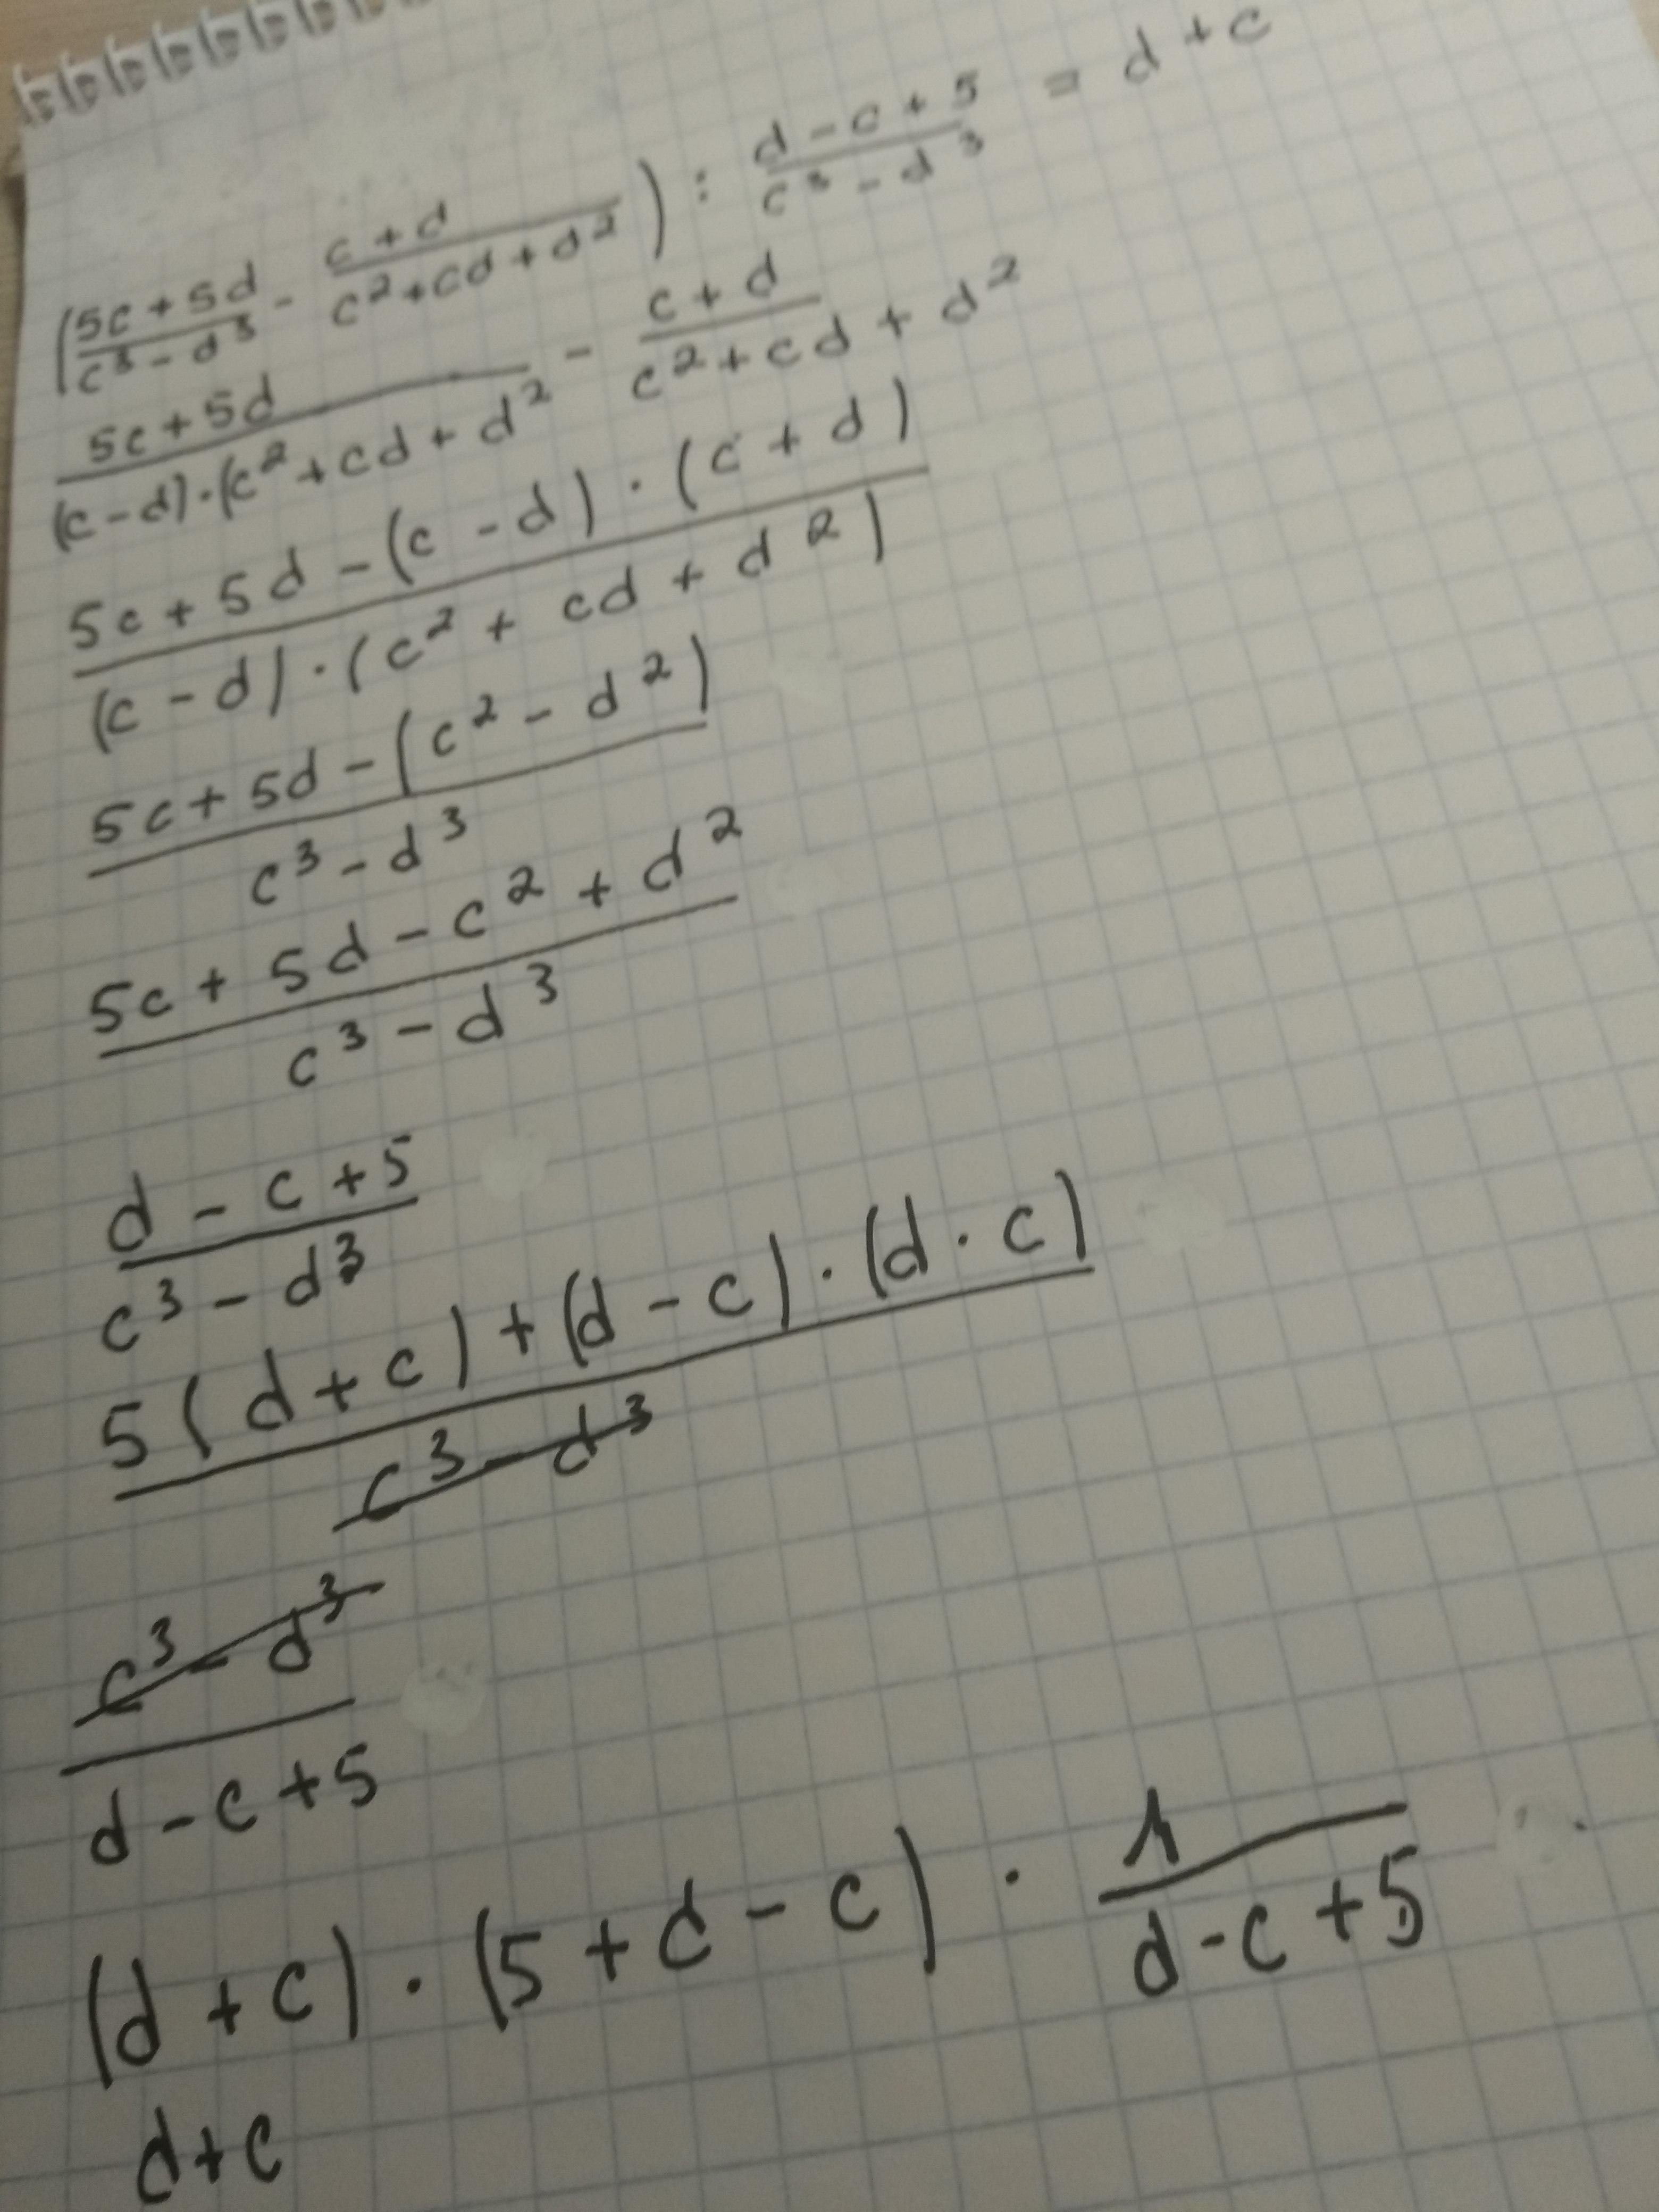 (5c+5d/c³-d³ - c+d/c²+cd+d²) : d-c+5/c³-d³ = d+c
5c+5d/(c-d)·(c²+cd+d² - c+d/c²+cd+d²
5c+5d-(c-d)·(c+d)/(c-d)·(c²+cd+d²)
5c+5d-(c²-d²)/c³-d³
5c+5d-c²+d²/c³-d³
d-c+5/c³-d³
5(d+c)+(d-c)·(d·c)/c³-d³
c³-d³/d-c+5
(d+c)·(5+d-c)·1/d-c+5
d+c